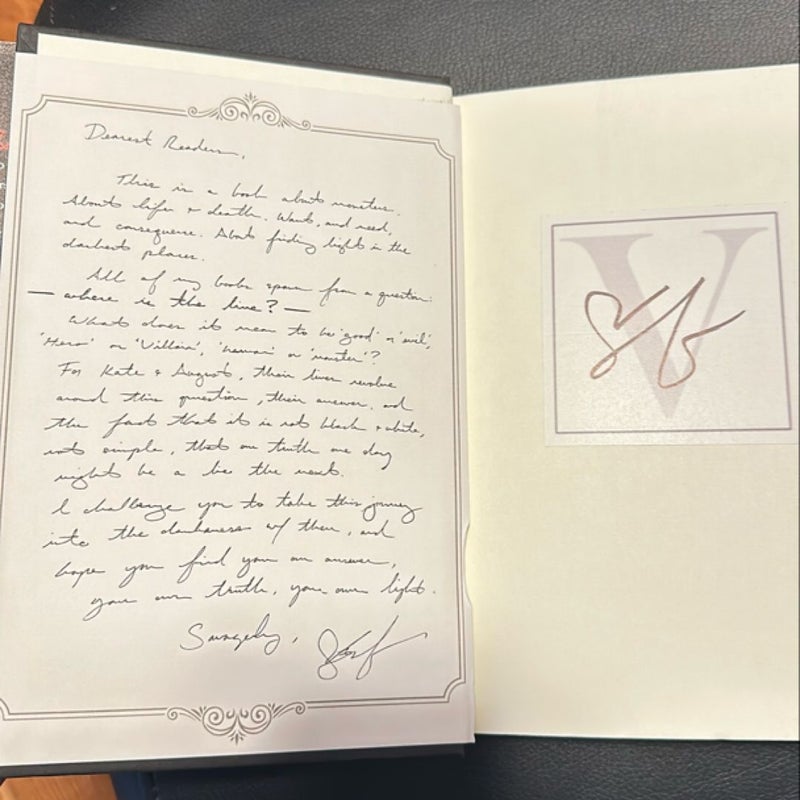 Dearest Readers,
This is a book about monsters.
About life + death. Want, and need,
and consequence. About finding light in the
darkest places.
All of my books spawn from a question:
— where is the line? —
What does it mean to be 'good' or 'evil',
'Hero' or 'Villain', 'human' or 'monster'?
For Kate + August, their lives revolve
around this question, their answer, and
the fact that it is not black + white,
not simple, that one truth one day
might be a lie the next.
I challenge you to take this journey
into the darkness w/ them, and
hope you find your own answer,
your own truth, your own light.
Savagely,
V